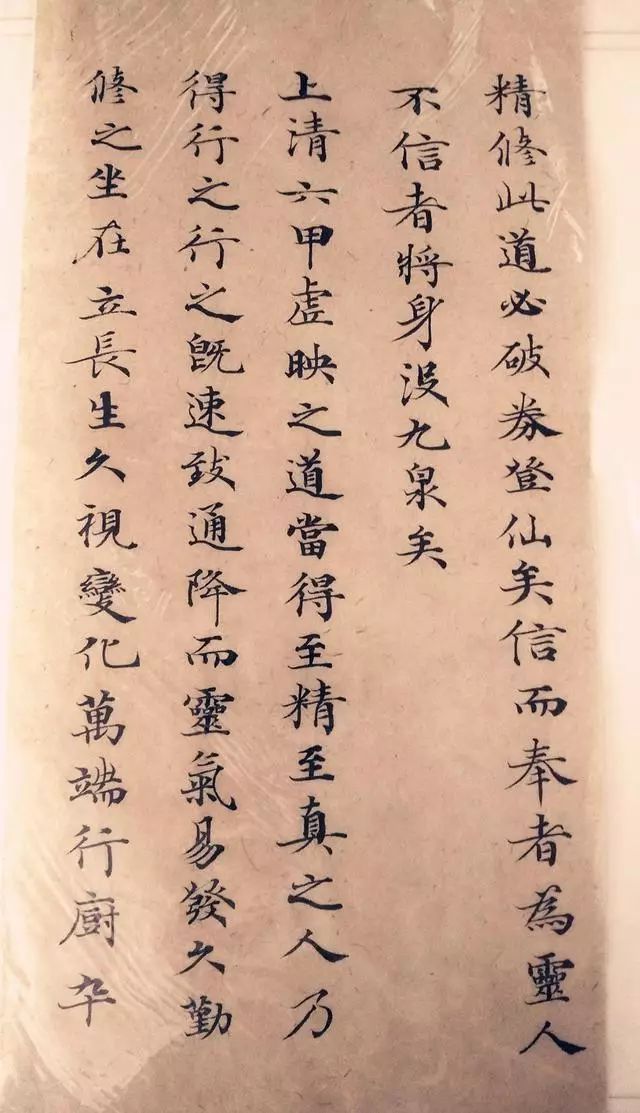 精脩此道必破券登仙矣信而奉者為靈人
不信者將身没九泉矣
上清六甲虛映之道當得至精至真之人乃
得行之行之既速致通降而靈氣易發久勤
脩之坐在立長生久視變化萬端行廚卒